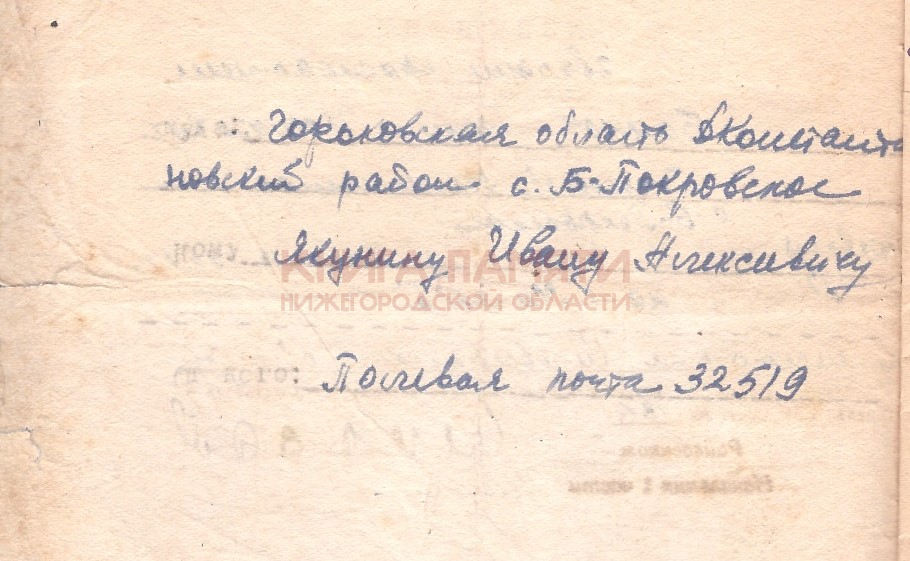 Горьковская область Д Констант
новский район с. Б-Покровское
Якунину Ивану Алексевичу
КНИГА ПАМЯТИ
НИЖЕГОРОДСКОЙ ОБЛАСТИ
Полевая почта 32519